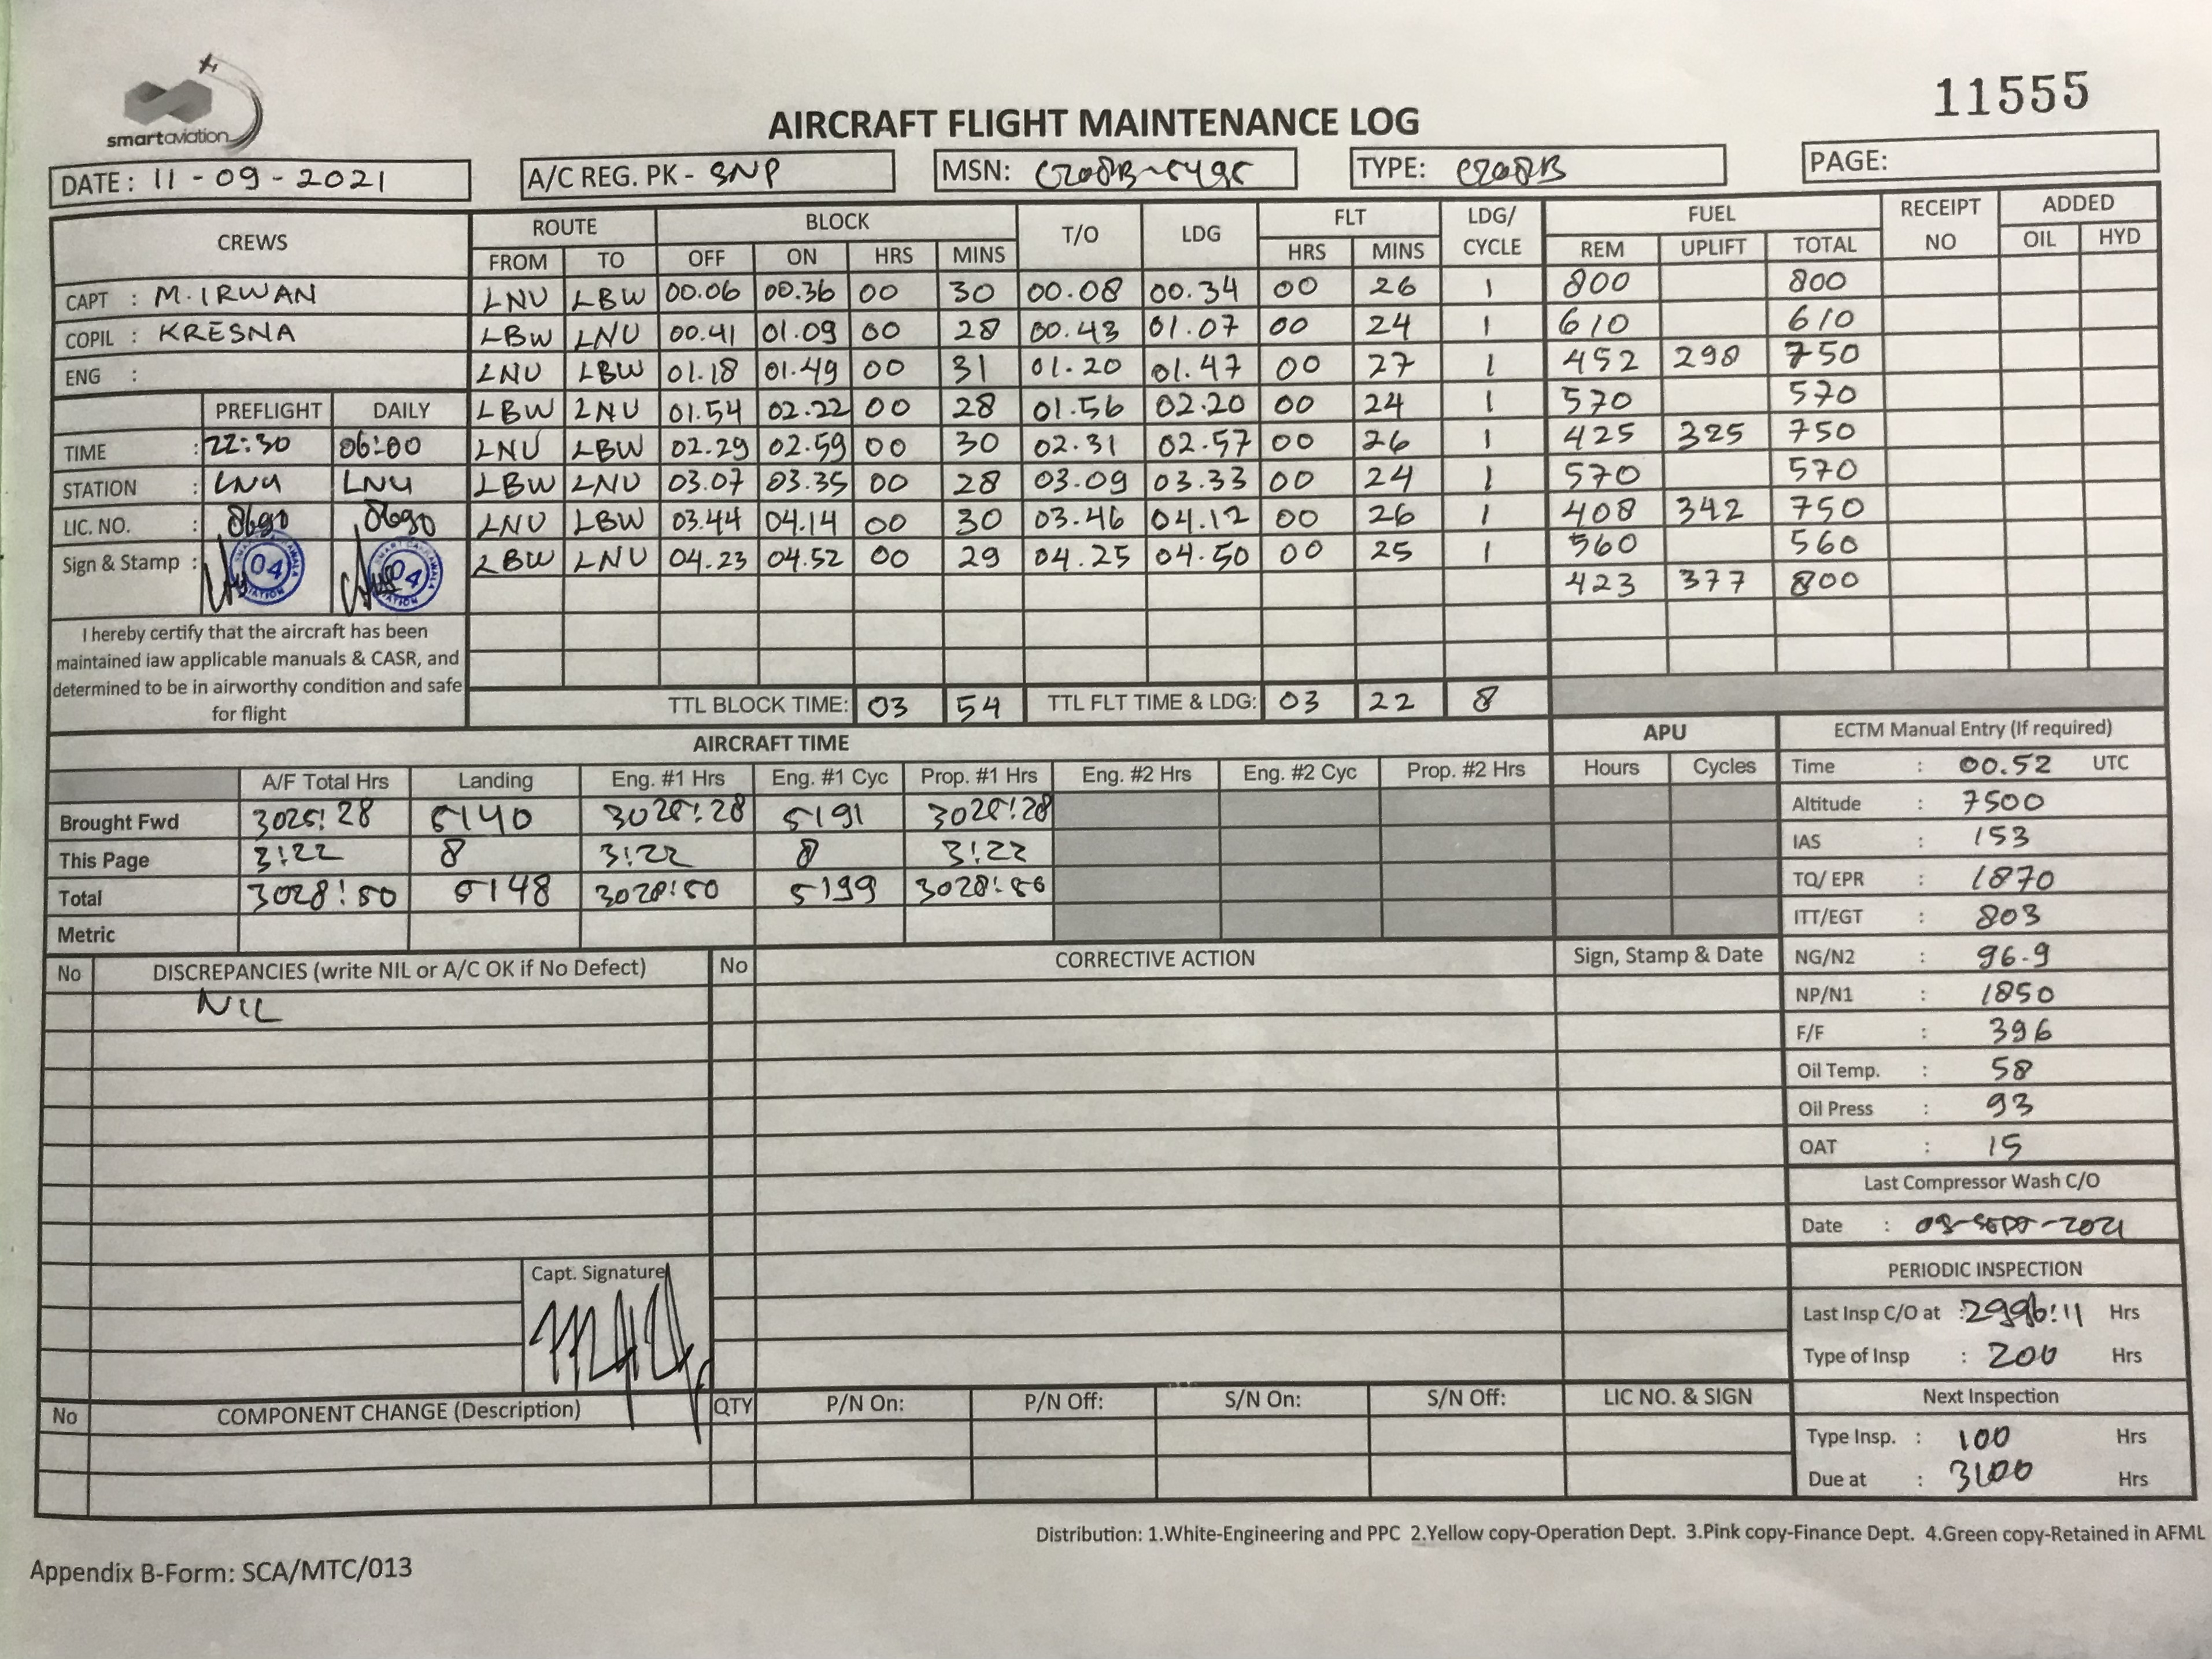 smartaviation
11555
AIRCRAFT FLIGHT MAINTENANCE LOG
DATE : 11 - 09 - 2021 A/C REG. PK - SNP MSN: C208B-5495 TYPE: C208B PAGE:
CREWS ROUTE BLOCK T/O LDG FLT LDG/ CYCLE FUEL RECEIPT NO ADDED
FROM TO OFF ON HRS MINS HRS MINS REM UPLIFT TOTAL OIL HYD
CAPT : M. IRWAN LNU LBW 00.06 00.36 00 30 00.08 00.34 00 26 1 800 800
COPIL : KRESNA LBW LNU 00.41 01.09 00 28 00.43 01.07 00 24 1 610 610
ENG : LNU LBW 01.18 01.49 00 31 01.20 01.47 00 27 1 452 298 750
PREFLIGHT DAILY LBW LNU 01.54 02.22 00 28 01.56 02.20 00 24 1 570 570
TIME : 22:30 06:00 LNU LBW 02.29 02.59 00 30 02.31 02.57 00 26 1 425 325 750
STATION : LNU LNU LBW LNU 03.07 03.35 00 28 03.09 03.33 00 24 1 570 570
LIC. NO. : 8690 8690 LNU LBW 03.44 04.14 00 30 03.46 04.12 00 26 1 408 342 750
Sign & Stamp : 04 04 LBW LNU 04.23 04.52 00 29 04.25 04.50 00 25 1 560 560
423 377 800
I hereby certify that the aircraft has been
maintained iaw applicable manuals & CASR, and
determined to be in airworthy condition and safe
for flight
TTL BLOCK TIME: 03 54 TTL FLT TIME & LDG: 03 22 8
AIRCRAFT TIME APU
A/F Total Hrs Landing Eng. #1 Hrs Eng. #1 Cyc Prop. #1 Hrs Eng. #2 Hrs Eng. #2 Cyc Prop. #2 Hrs Hours Cycles
Brought Fwd 3025:28 5140 3025:28 5191 3025:28
This Page 3:22 8 3:22 8 3:22
Total 3028:50 5148 3028:50 5199 3028:50
Metric
ECTM Manual Entry (If required)
Time : 00.52 UTC
Altitude : 7500
IAS : 153
TQ/ EPR : 1870
ITT/EGT : 803
NG/N2 : 96.9
NP/N1 : 1850
F/F : 396
Oil Temp. : 58
Oil Press : 93
OAT : 15
Last Compressor Wash C/O
Date : 08-SEPT-2021
PERIODIC INSPECTION
Last Insp C/O at : 2996:11 Hrs
Type of Insp : 200 Hrs
Next Inspection
Type Insp. : 100 Hrs
Due at : 3100 Hrs
No DISCREPANCIES (write NIL or A/C OK if No Defect) No CORRECTIVE ACTION Sign, Stamp & Date
NIL
Capt. Signature
No COMPONENT CHANGE (Description) QTY P/N On: P/N Off: S/N On: S/N Off: LIC NO. & SIGN
Distribution: 1.White-Engineering and PPC 2.Yellow copy-Operation Dept. 3.Pink copy-Finance Dept. 4.Green copy-Retained in AFML
Appendix B-Form: SCA/MTC/013